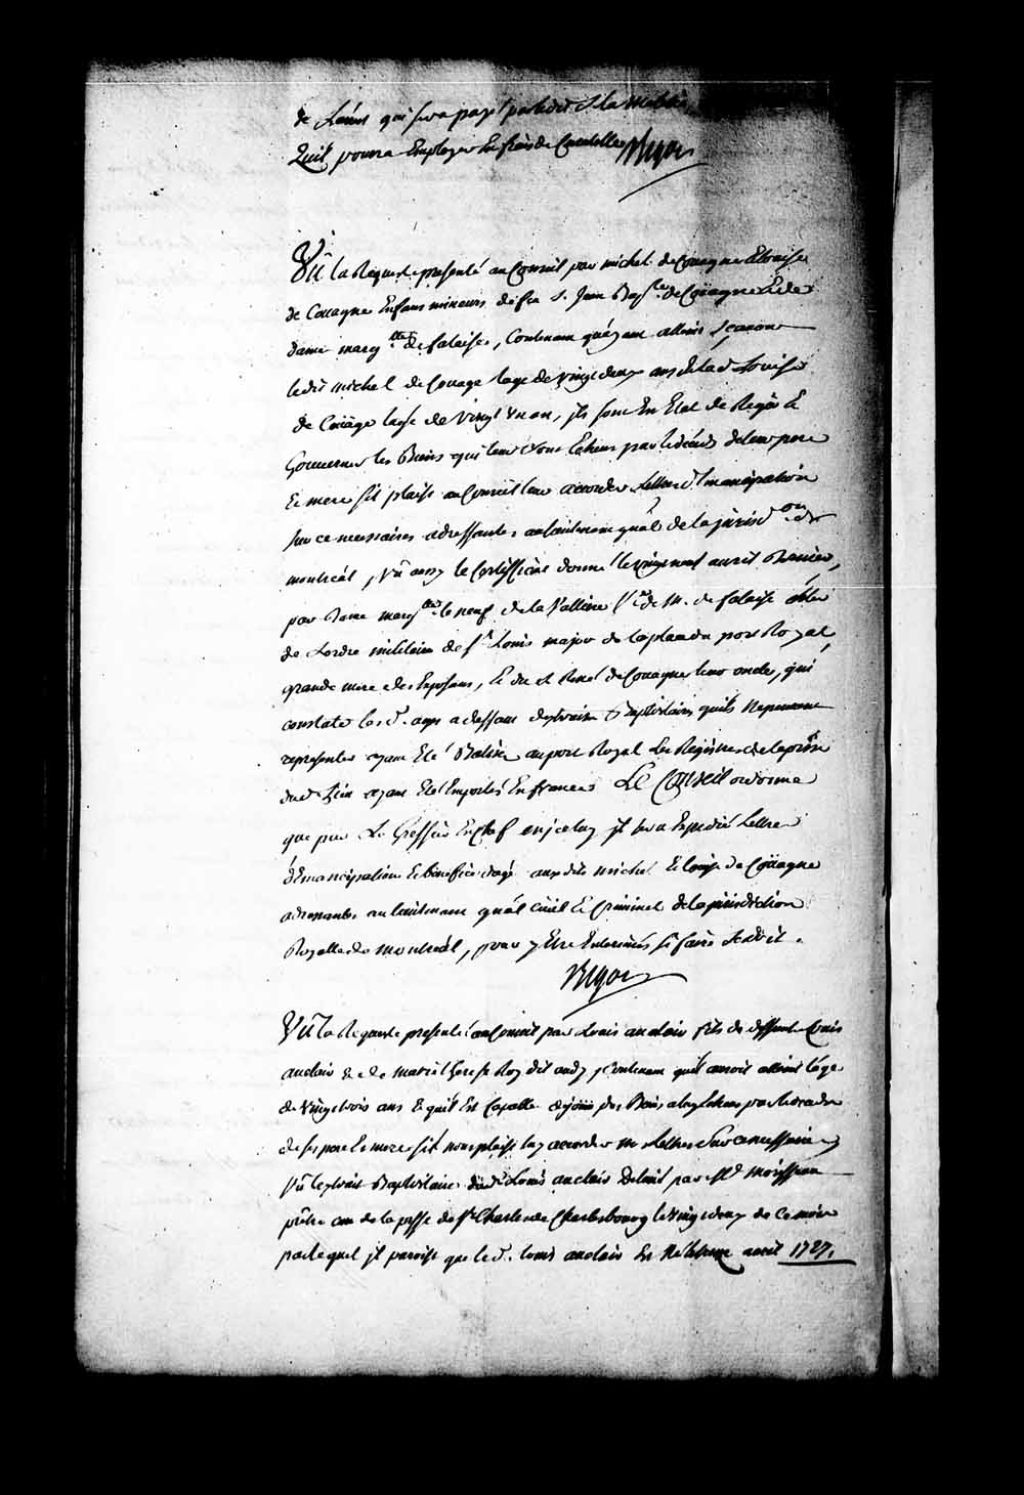 de qui sera payé par led. et la
Quil pourra Employer En frais de Bigot
Vû la Requeste presenté au Conseil par michel deCouagne & Louise
de Couagne Enfans mineurs de feu S. Jean Bap.te deCoüagne & de
dame marg.tte de falaise, Contenant quayant atteint Sçavoir
ledit michel de Couagne lage de vingt deux ans & lad. Louise
de Coüagne lage de Vingt Un an, ils sont En Etat de Regir &
Gouverner les Biens qui leur sont Echeus par le décéds de leur pere
Et mere sil plaise au Conseil leur accorder Lettres d'Emancipation
sur ce necessaires adressantes au Lieutenant gñal de la jurisd.on de
montreal, Vû aussy le Certifficat donné le vingt neuf avril Dernier,
par Dame marg.tte le neuf de la Valliere V.e de M. de falaise
de Lordre militaire de S.t Louis major de la place du port Royal,
grande mere des Exposans, Et du S.r René de Couagne leur oncle, qui
constate les d. ages a deffaut dextraits Baptistaires quils ne peuvent
representer ayant Eté Batisés au port Royal Les Registres de la paroisse
dud. Lieu ayant Eté Emportés En france Le Conseil ordonne
que par Le Greffier En Chef en jceluy jl sera Expedié Lettres
d'Emancipation & benefice dage aux dits michel & Louise de Coüagne
adressantes au Lieutenant gñal Civil & Criminel de la jurisdiction
Royalle de Montreal, pour y Etre Enterinées si faire se doit.
Bigot
Vû la Requeste presentée au Conseil par Louis anclain fils de deffunt Louis
anclain & de marie therese Roy dit audy, Contenant quil auroit atteint l'age
de Vingt trois ans & quil Est Capable de jouir des Biens a luy Echeus par le décéds
de ses pere & mere sil nous plaise luy accorder nos Lettres Sur ce necessaires
Vû Lextrait Baptistaire dud. Louis anclain Delivré par le Sr. Morisseau
prêtre curé de la p.sse de S.t Charles de Charlesbourg le vingt deux de ce mois
par lequel jl paroist que le d. Louis anclain Est né le avril 1727.